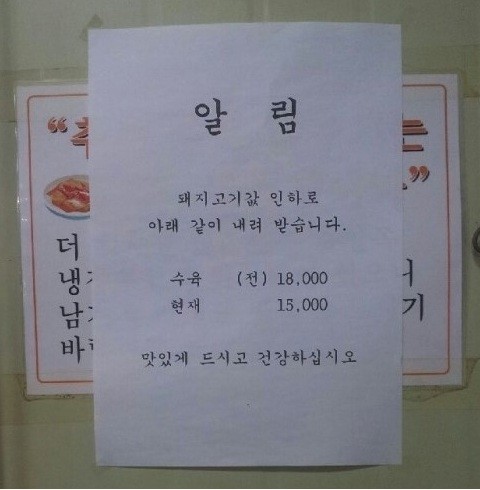 알 림
돼지고기값 인하로
아래 같이 내려 받습니다.
수육 (전) 18,000
현재 15,000
맛있게 드시고 건강하십시오
더
남
기